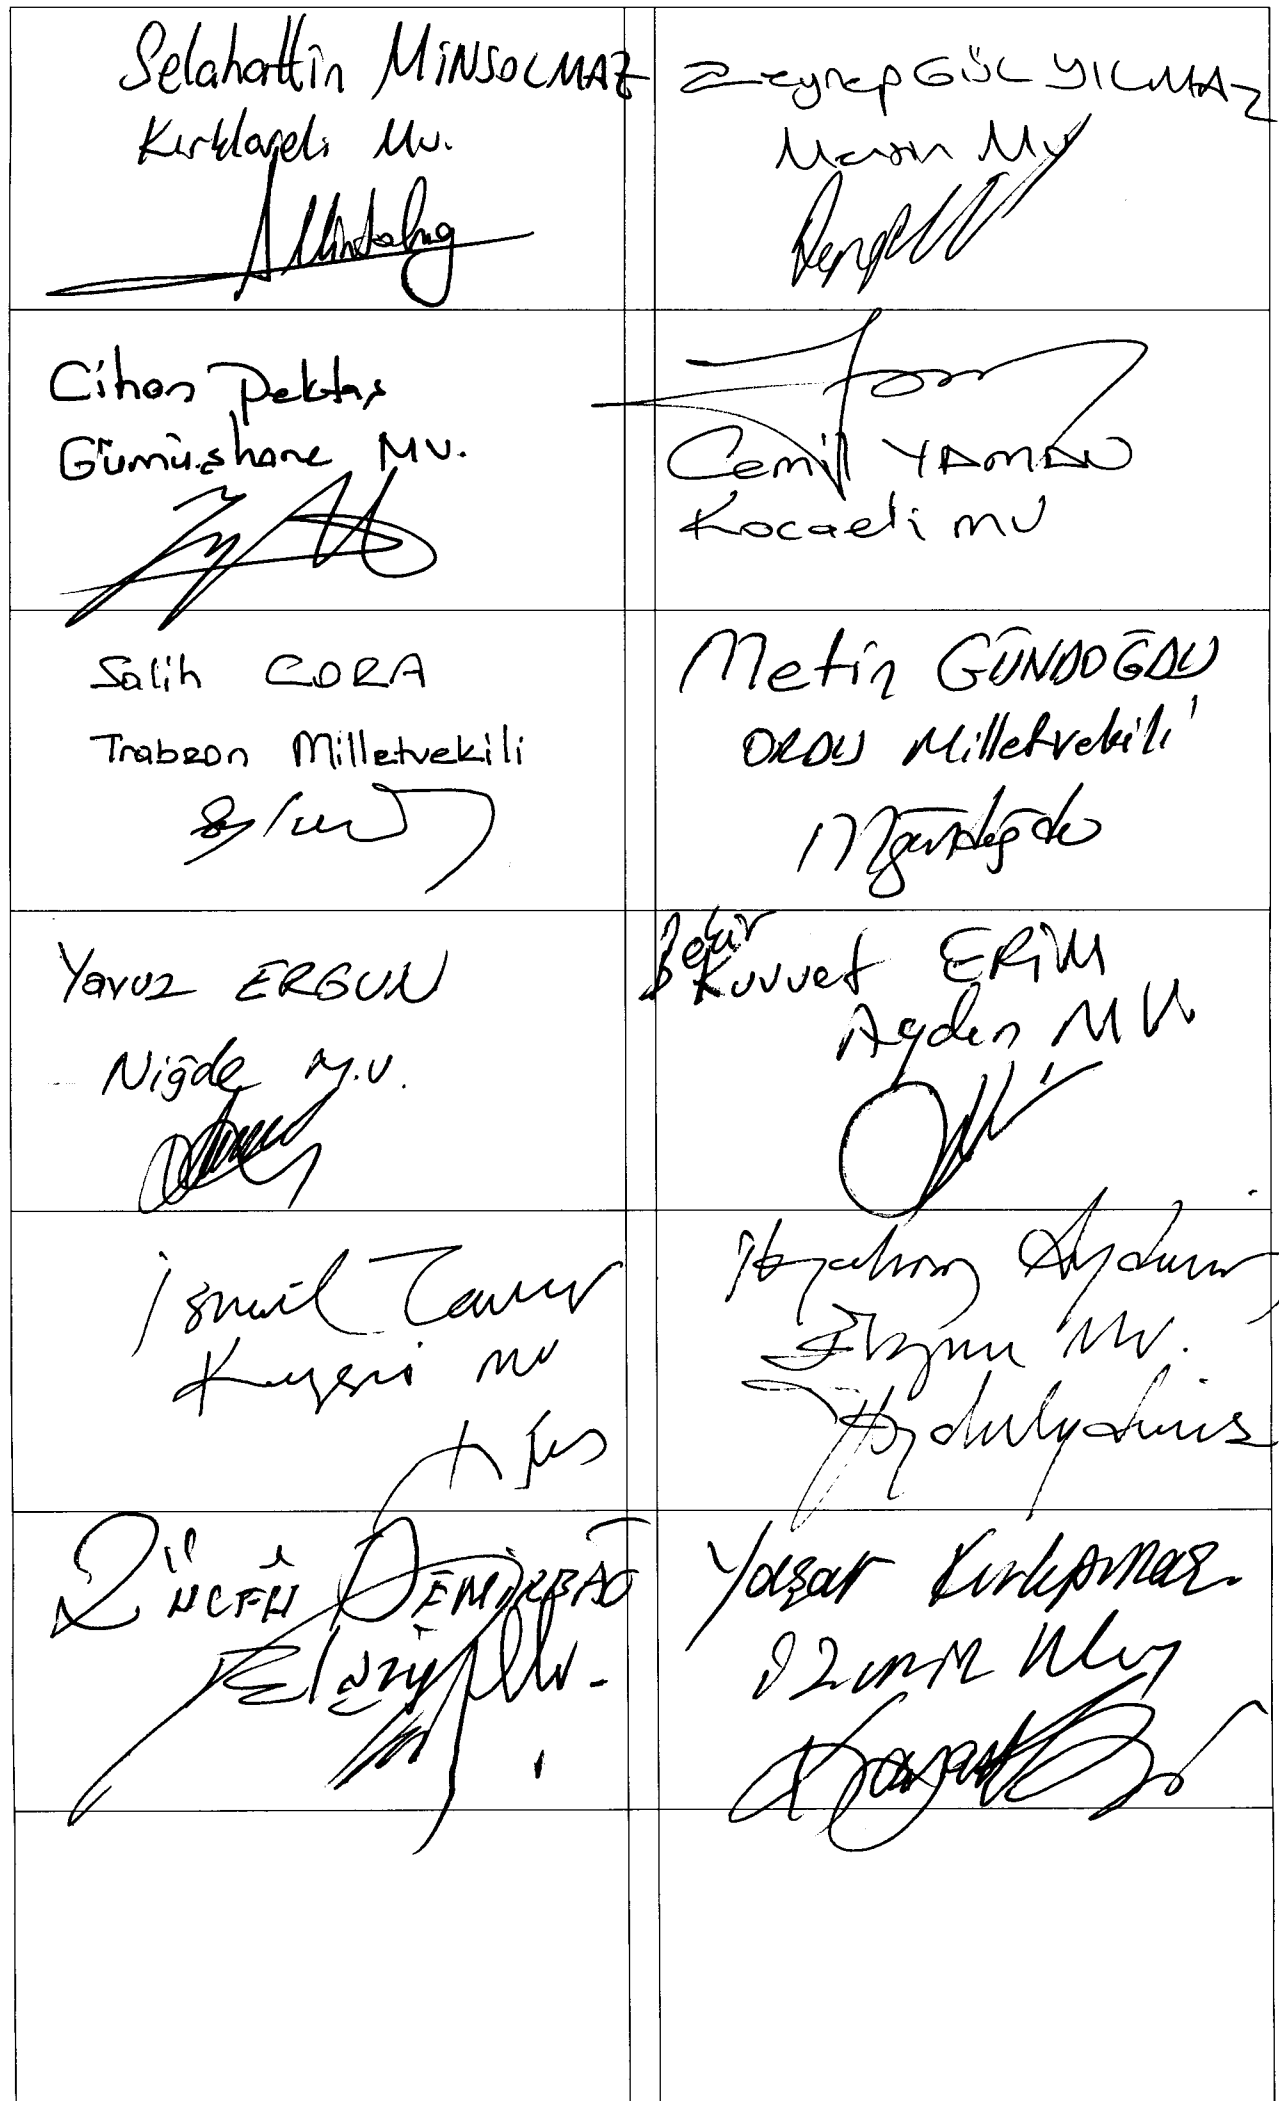 Selahattin MİNSOLMAZ
Kırklareli Mv.
Zeynep GÜL YILMAZ
Mersin Mv
Cihan Pektaş
Gümüşhane MV.
Cemil YAMAN
Kocaeli mv
Salih CORA
Trabzon Milletvekili
Metin GÜNDOĞDU
ORDU Milletvekili
Yavuz ERGUN
Niğde M.V.
Bekir
Kuvvet ERİM
Aydın MV.
İsmail Tamer
Kayseri mv
Aydemir
Mv.
Zülfü DEMİRBAĞ
Elazığ Mv.
Yaşar Kırkpınar
İzmir Mv